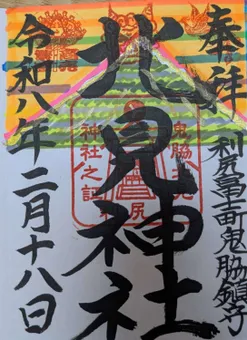 奉拝
利尻富士町鬼脇鎮守
北見神社
神社之記
令和八年二月十八日